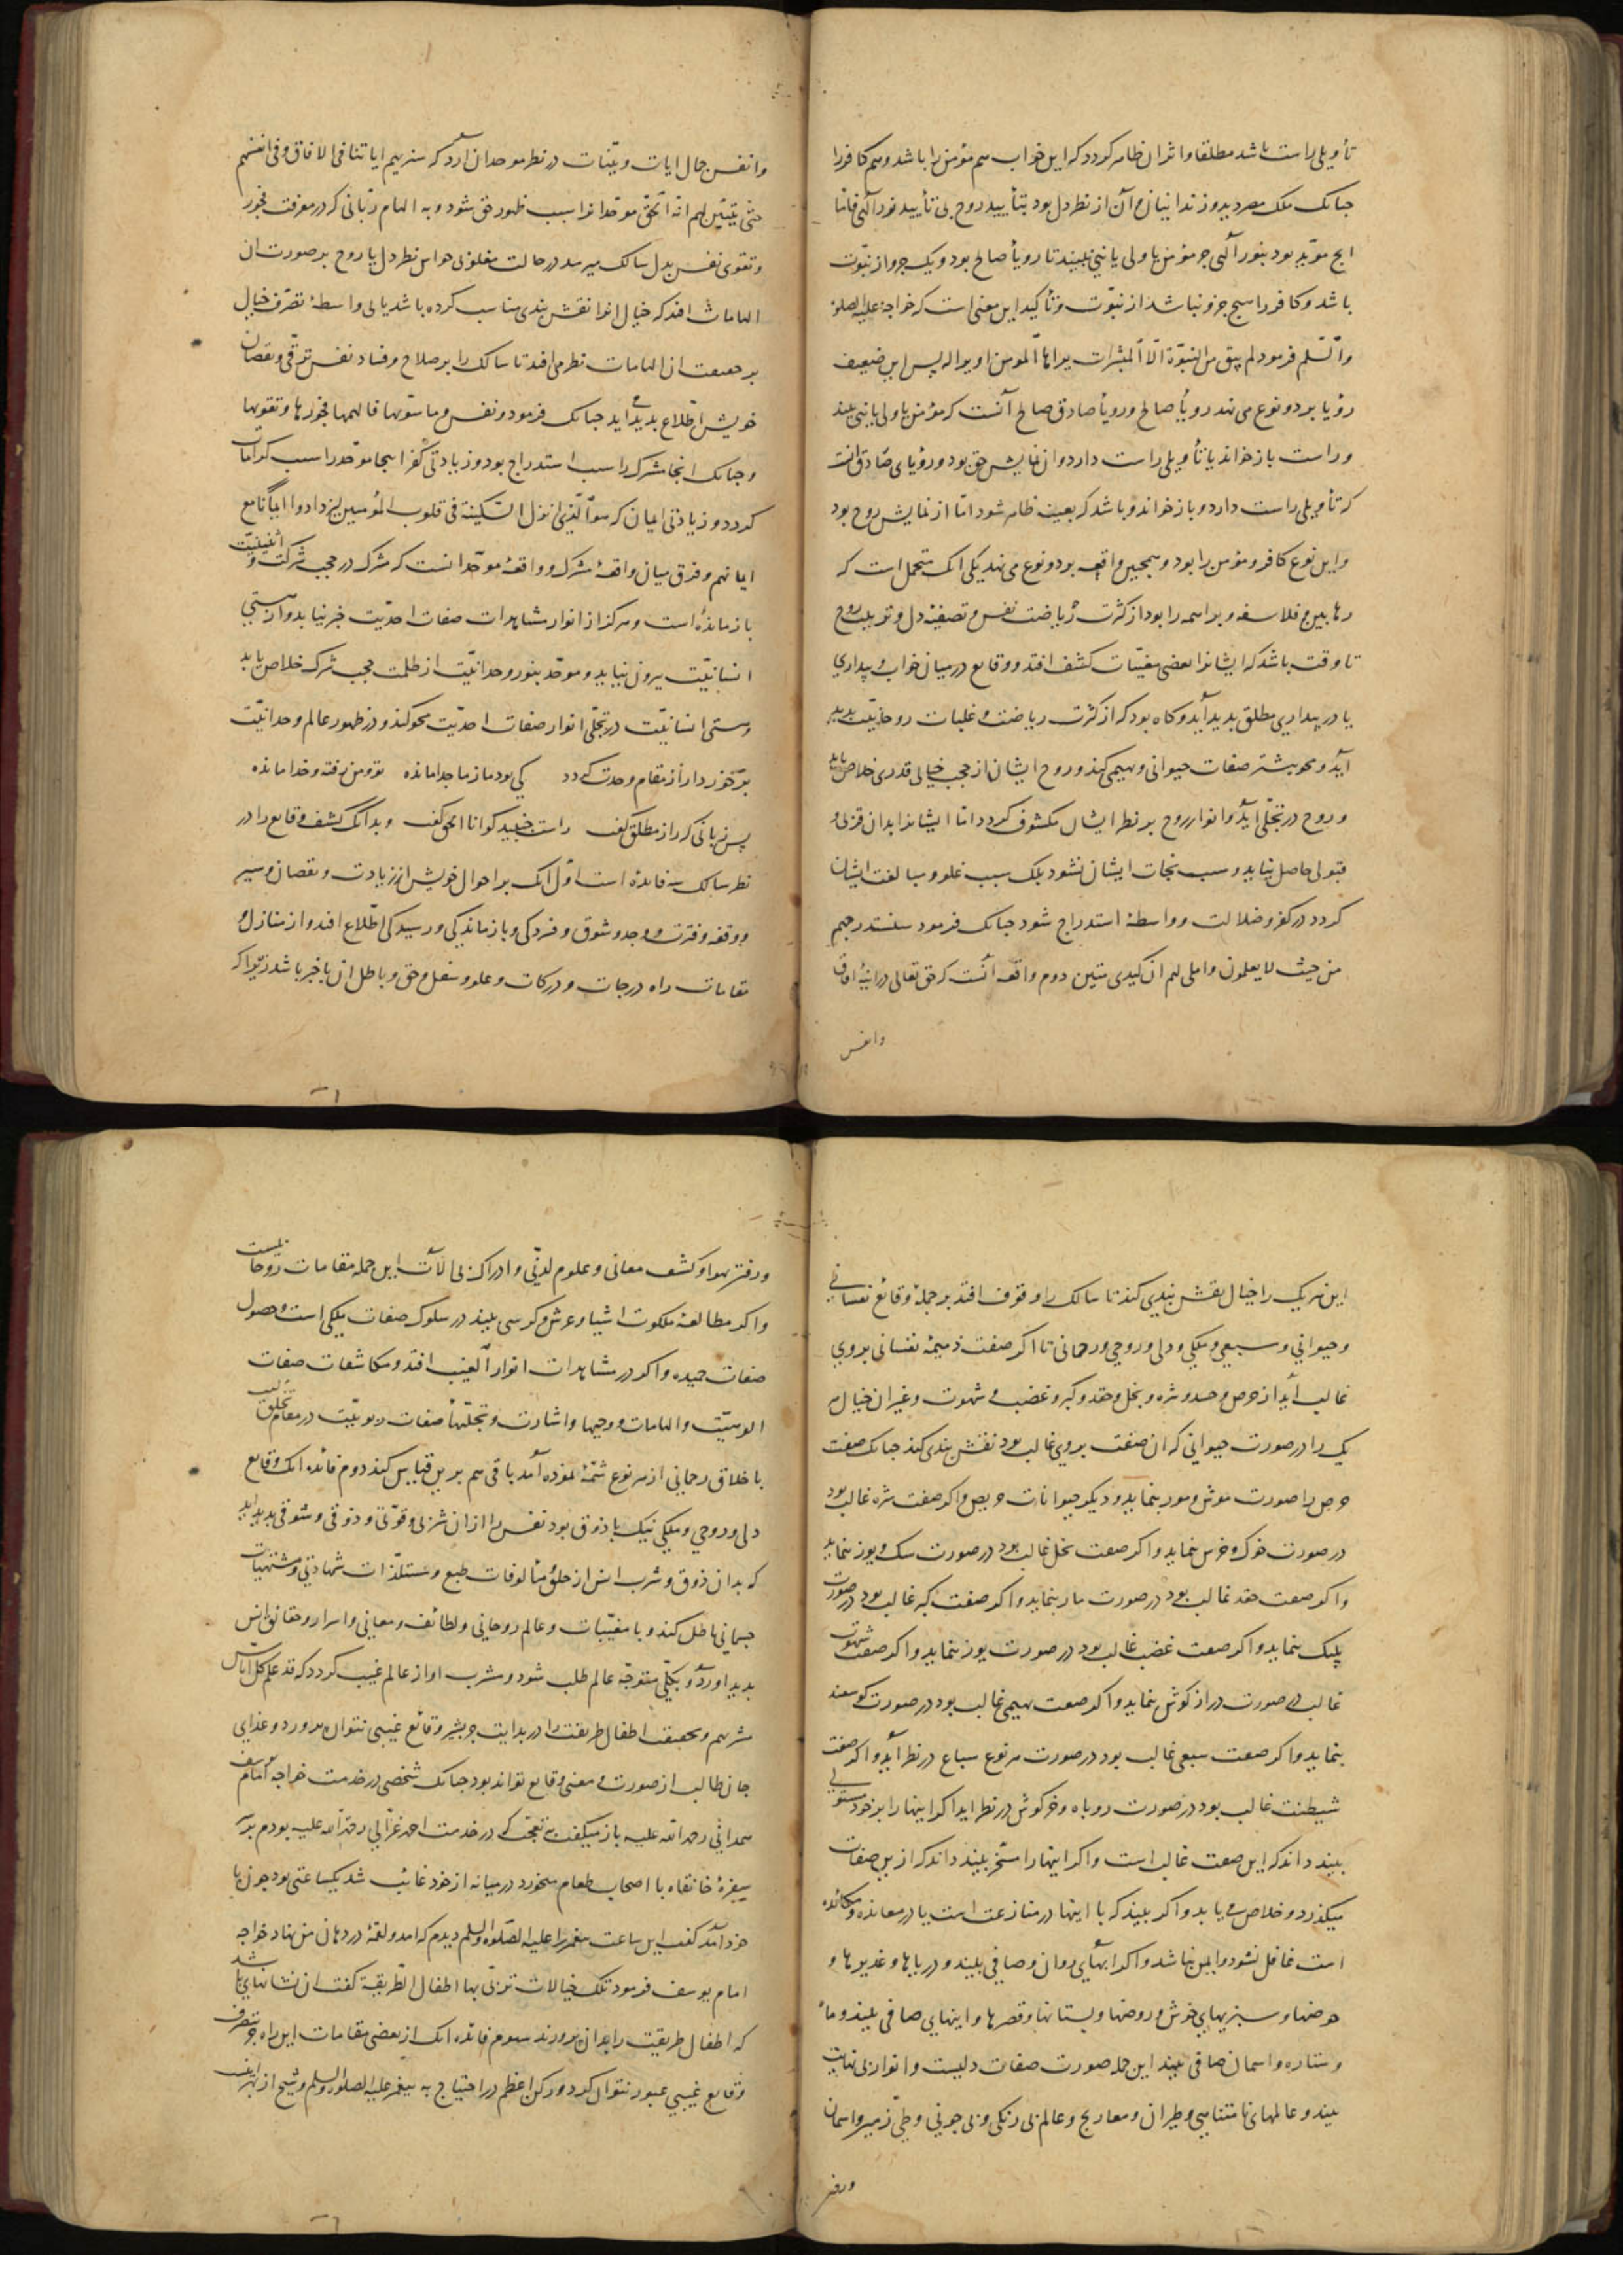 تأویلی راست باشد مطلقا واثر ان ظاهر کردد که این خواب هم مؤمن را باشد وهم کافر را
جنانک ملک مصر دید وزندانیان و آن از نظر دل بود بتأیید روح بی تأیید نور آلهی فامّا
انج مؤیّد بود بنور آلهی جز مؤمن یا ولی یا نبی نبیند تا رویأ صالح بود ویک جزو از نبوّت
باشد وکافر را هیج جزو نباشد از نبوّت وتأکید این معنی است که خواجه علیه الصلوة
والسّلم فرمود لم یبق من النبوّة الّا المبشرات یراها المومن او یرا له پس این ضعیف
رؤیا بر دو نوع می نهد رویأ صالح ورویأ صادق صالح آنست که مؤمن یا ولی یا نبی بیند
وراست باز خواند یا تأویلی راست دارد وان نمایش حق بود ورؤیای صادق انست
که تأویلی راست دارد وباز خواند وباشد که بعینه ظاهر شود امّا از نمایش روح بود
واین نوع کافر ومؤمن را بود وهمجنین واقعه بر دو نوع می نهد یکی انک متحمل است که
رهابین و فلاسفه وبراهمه را بود از کثرت ریاضت نفس وتصفیهٔ دل وتربیت روح
تا وقت باشد که ایشانرا بعضی مغیّبات کشف افتد ووقایع در میان خواب وبیداری
یا در بیداری مطلق بدید آید وکاه بود که از کثرت ریاضت وغلبات روحانیّت بدید
آید ومحو بیشتر صفات حیوانی وبهیمی کند وروح ایشان از حجب خیالی قدری خلاص یابد
وروح در تجلّی آید وانوار روح بر نظر ایشان مکشوف کردد امّا ایشانرا بدان قربی و
قبولی حاصل نیاید وسبب نجات ایشان نشود بلک سبب غلو ومبالغت ایشان
کردد در کفر وضلالت وواسطهٔ استدراج شود جنانک فرمود سنستدرجهم
من حیث لا یعلمون واملی لهم ان کیدی متین دوم واقعه آنست که حق تعالی در اینهٔ افاق
وانفس
وانفس جمال ایات وبیّنات در نظر موحدان آرد که سنریهم ایاتنا فی الافاق وفی انفسهم
حتّی یتبیّن لهم انّه الحق موحّدانرا سبب ظهور حق شود وبه الهام ربّانی که در معرفت فجور
وتقوی نفس بدل سالک میرسد در حالت مغلوبی حواس نظر دل یا روح بر صورت ان
الهامات افتد که خیال انرا نقش بندی مناسب کرده باشد یا بی واسطهٔ تصرّف خیال
بر حقیقت ان الهامات نظر می افتد تا سالک را بر صلاح وفساد نفس ترقّی ونقصان
خویش اطّلاع بدید می اید جنانک فرمود ونفس وما سوّیها فالهمها فجورها وتقویها
وجنانک انجا شرک را سبب استدراج بود وزیادتی کفر اینجا موحّد را سبب کرامات
کردد وزیادتی ایمان که هوا الّذی انزل السّکینة فی قلوب المؤمنین لیزدادوا ایمانا مع
ایمانهم وفرق میان واقعهٔ مشرک وواقعهٔ موحّد انست که مشرک در حجب شرکت واثنینیّت
باز مانده است وهرکز از انوار مشاهدات صفات احدیّت خبر نیابد واز هستی
انسانیّت بیرون نیاید وموحّد بنور وحدانیّت از ظلمت حجب شرک خلاص یابد
وهستی انسانیّت در تجلّی انوار صفات احدیّت محو کند ودر ظهور عالم وحدانیّت
برخوردار از مقام وحدت کردد کی بود ما ز ما جدا مانده تو ومن رفته وخدا مانده
پس زبانی که راز مطلق کفت راست جنبید کو انا الحق کفت وبدانک کشف وقایع را در
نظر سالک سه فایده است اوّل انک بر احوال خویش از زیادت ونقصان وسیر
ووقفه وفترت ووجد وشوق وفسردکی وباز ماندکی ورسیدکی اطّلاع افتد واز منازل و
مقامات راه درجات ودرکات وعلو وسفل وحق وباطل ان با خبر باشد زیرا که
این هریک را خیال نقش بندی کند تا سالک را وقوف افتد بر جملهٔ وقائع نفسانی
وحیوانی وسبعی وملکی ودلی وروحی ورحمانی تا اکر صفت ذمیمهٔ نفسانی بر وی
غالب آید از حرص وحسد وشره وبخل وحقد وکبر وغضب وشهوت وغیر ان خیال هر
یک را در صورت حیوانی که ان صفت بر وی غالب بود نقش بندی کند جنانک صفت
حرص را صورت موش ومور بنماید ودیکر حیوانات حریص واکر صفت شره غالب بود
در صورت خوک وخرس نماید واکر صفت بخل غالب بود در صورت سک وبوز نماید
واکر صفت حقد غالب بود در صورت مار بنماید واکر صفت کبر غالب بود در صورت
پلنک بنماید واکر صفت غضب غالب بود در صورت یوز بنماید واکر صفت شهوت
غالب در صورت دراز کوش بنماید واکر صفت بهیمی غالب بود در صورت کوسفند
بنماید واکر صفت سبعی غالب بود در صورت هر نوع سباع در نظر آید واکر صفت
شیطنت غالب بود در صورت روباه وخرکوش در نظر اید اکر اینها را بر خود مستولی
بیند داند که این صفت غالب است واکر اینها را مسخّر بیند داند که ازین صفات
میکذرد وخلاص می یابد واکر بیند که با اینها در منازعت است یا در معانده ومکائده
است غافل نشود وایمن نباشد واکر ابهای روان وصافی بیند ودریاها وغدیرها و
حوضها وسبزیهای خوش وروضها وبستانها وقصرها واینهای صافی بیند وماه
وستاره واسمان صافی بیند این جمله صورت صفات دلیست وانوار بی نهایت
بیند وعالمهای نا متناهی وطیران ومعاریج وعالم بی رنکی وبی جونی وطیّ زمین واسمان
ورفتن
ورفتن بر هوا وکشف معانی وعلوم لدنّی وادراک بی آلات این جمله مقامات روحانیست
واکر مطالعهٔ ملکوت اشیا وعرش وکرسی بیند در سلوک صفات ملکی است وحصول
صفات حمیده واکر در مشاهدات انوار الغیب افتد ومکاشفات صفات
الوهیّت والهامات ووحیها واشارت وتجلّیها صفات ربوبیّت در مقام تخلّق است
باخلاق رحمانی از هر نوع شمّهٔ نموده آمد باقی هم برین قیاس کند دوم فائده انک وقایع
دلی وروحی وملکی نیک با ذوق بود نفس را ازان شربی وقوّتی وذوقی وشوقی بدید اید
که بدان ذوق وشرب انس از خلق ومألوفات طبع ومستلذّات شهادتی ومشتهیات
جسمانی باطل کند وبا مغیّبات وعالم روحانی ولطائف ومعانی واسرار وحقائق انس
بدید اورد وبکلّی متوجّه عالم طلب شود ومشرب او از عالم غیب کردد که قد علم کل اناس
مشربهم وبحقیقت اطفال طریقت را در بدایت جز بشیر وقائع غیبی نتوان برورد وغذای
جان طالب از صورت ومعنی وقایع تواند بود جنانک شخصی در خدمت خواجه امام یوسف
همدانی رحمة الله علیه باز میکفت بتعجّب که در خدمت احمد غزالی رحمة الله علیه بودم بر
سفرهٔ خانقاه با اصحاب طعام میخورد در میانه از خود غائب شد یکساعتی بود جون با
خود آمد کفت این ساعت پیغمبر را علیه الصّلوة والسلم دیدم که امد ولقمهٔ در دهان من نهاد خواجه
امام یوسف فرمود تلک خیالات تربّی بها اطفال الطّریقة کفت ان نشانهای باشد
که اطفال طریقت را بدان برورند سوم فائده انک از بعضی مقامات این راه جز بتصرف
وقایع غیبی عبور نتوان کرد ورکن اعظم در احتیاج به پیغمبر علیه الصلوة والسلم وشیخ از بهر اینست